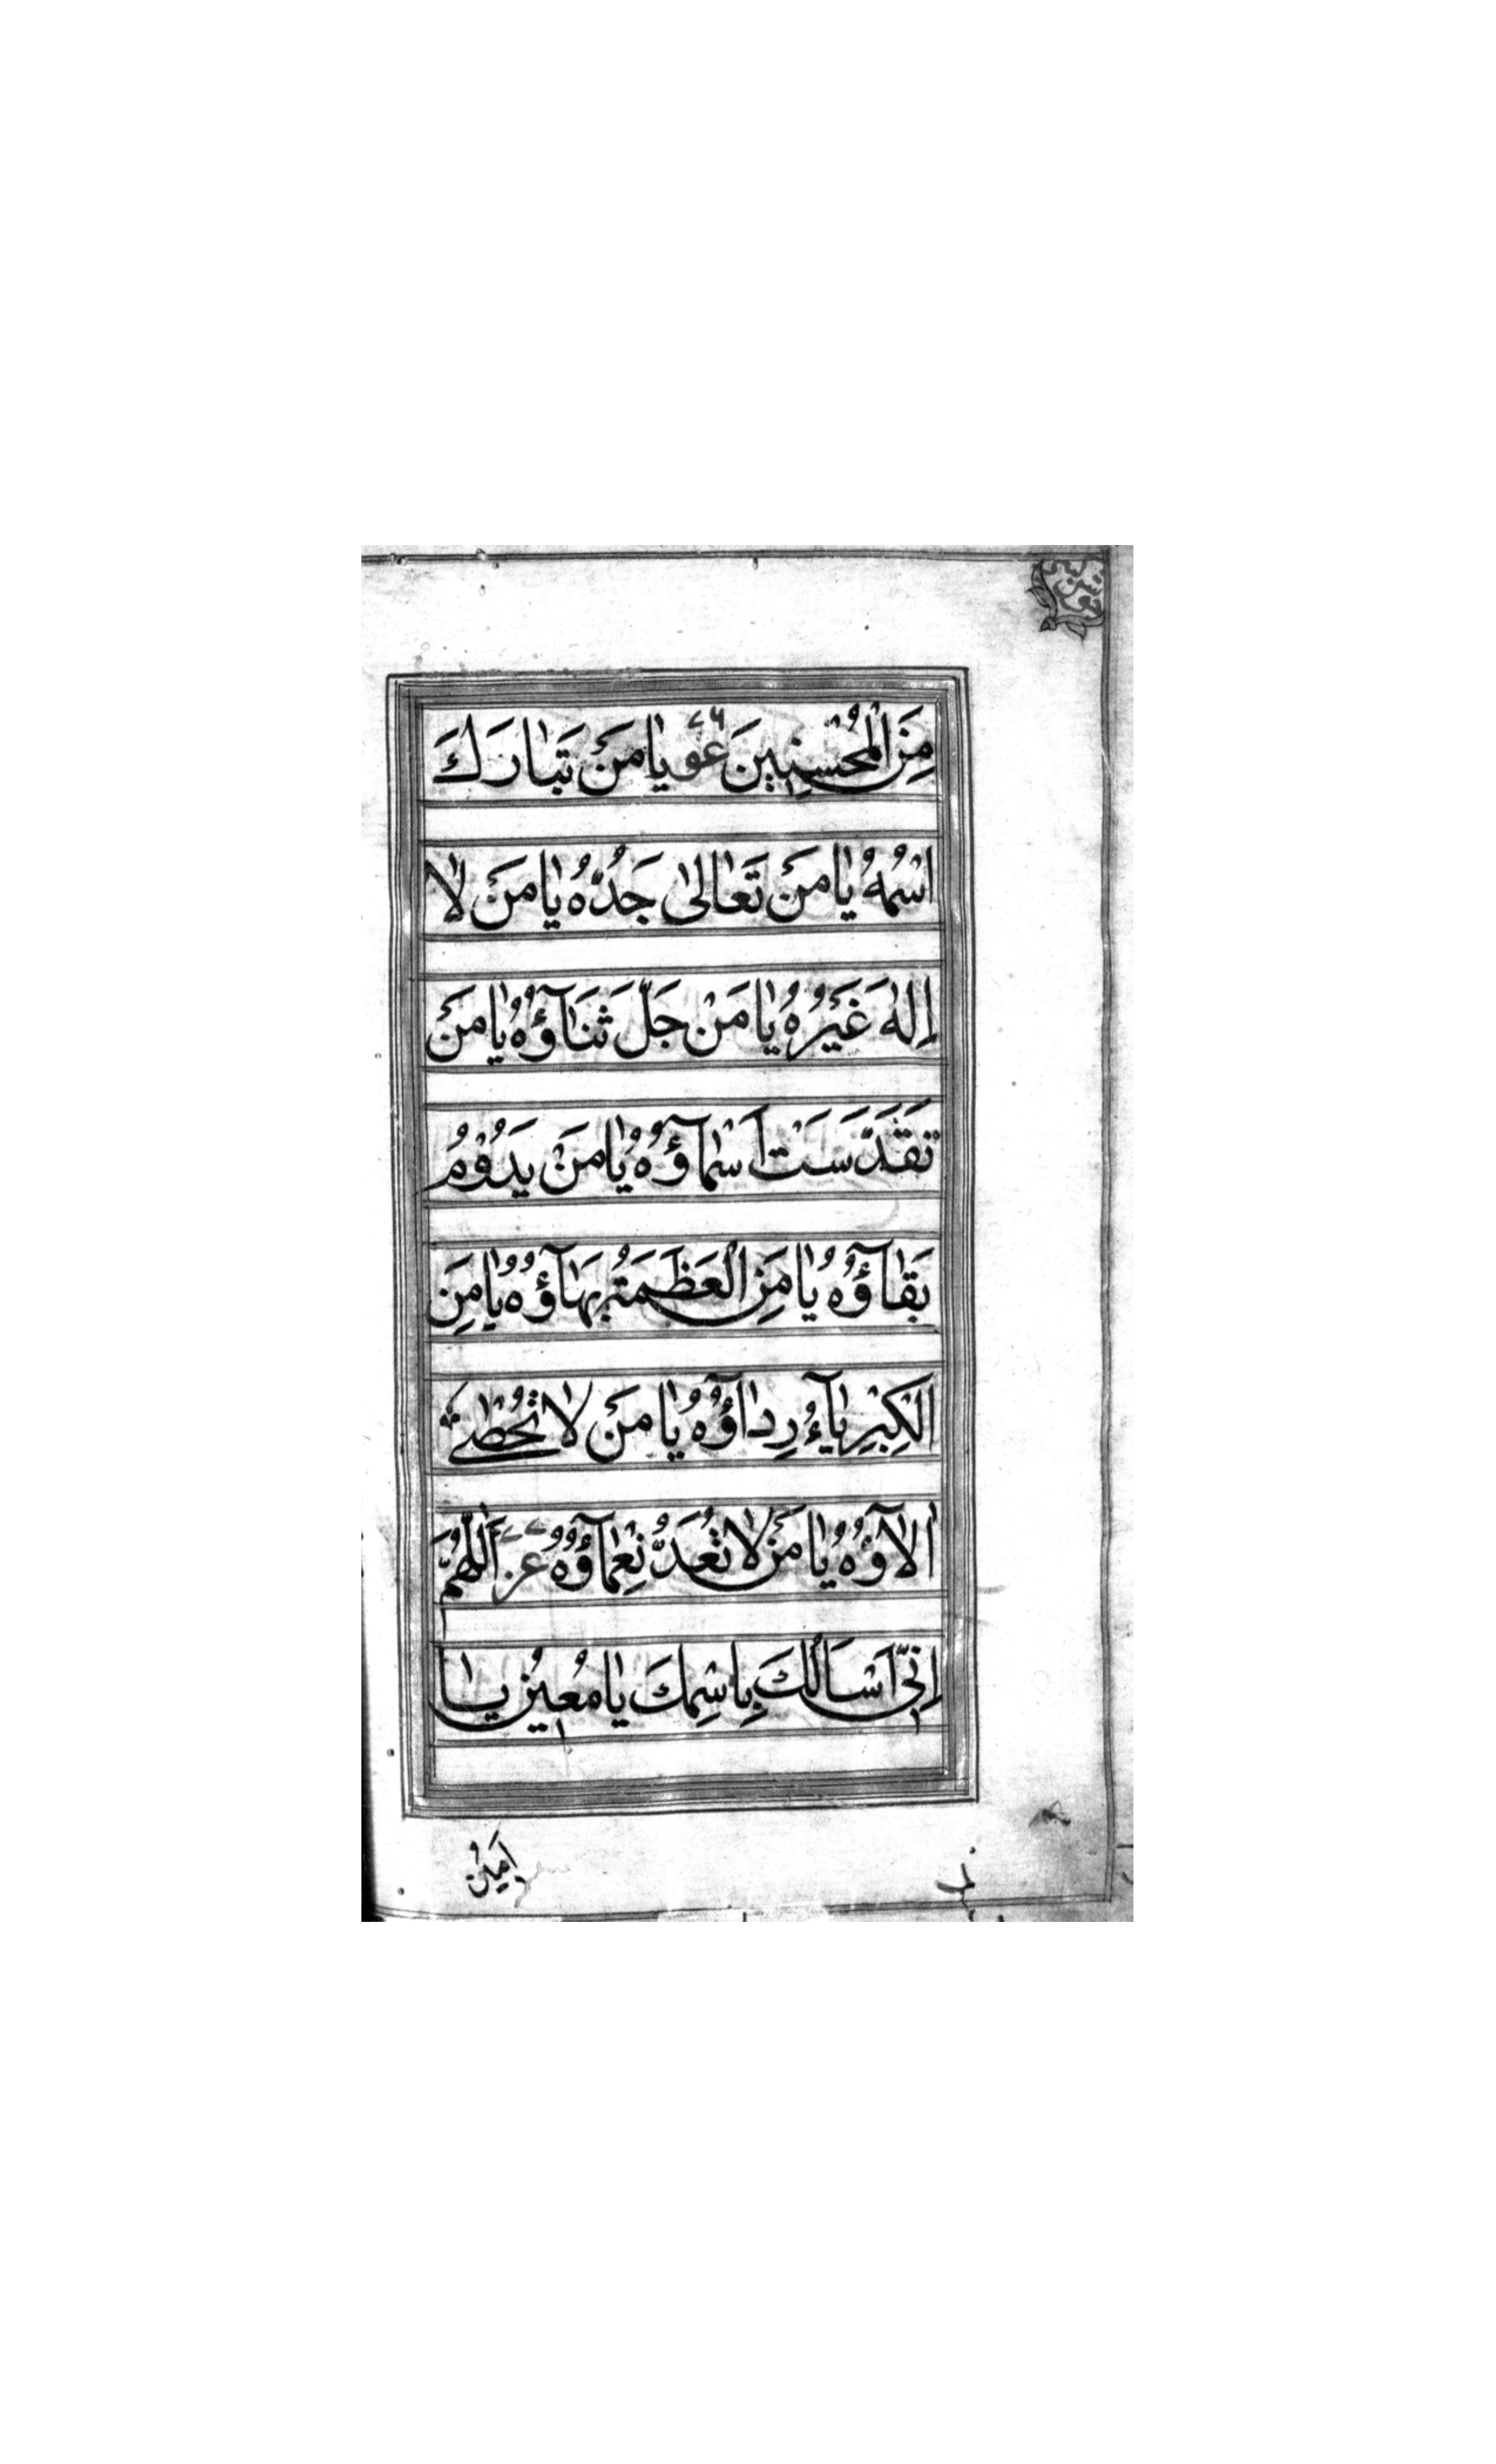 مِنَ الْمُحْسِنِينَ عو ٧٦ يَا مَنْ تَبَارَكَ
اسْمُهُ يَا مَنْ تَعَالىٰ جَدُّهُ يَا مَنْ لَا
اِلٰهَ غَيْرُهُ يَا مَنْ جَلَّ ثَنَآؤُهُ يَا مَنْ
تَقَدَّسَتْ اَسْمَآؤُهُ يَا مَنْ يَدُوْمُ
بَقَآؤُهُ يَا مَنِ الْعَظَمَةُ بَهَآؤُهُ يَا مَنِ
الْكِبْرِيَآءُ رِدَآؤُهُ يَا مَنْ لَا تُحْصٰى
اٰلَآؤُهُ يَا مَنْ لَا تُعَدُّ نَعْمَآؤُهُ عز ٧٧ اَللّٰهُمَّ
اِنِّيْ اَسْأَلُكَ بِاسْمِكَ يَا مُعِيْنُ يَا
اَمِيْنُ